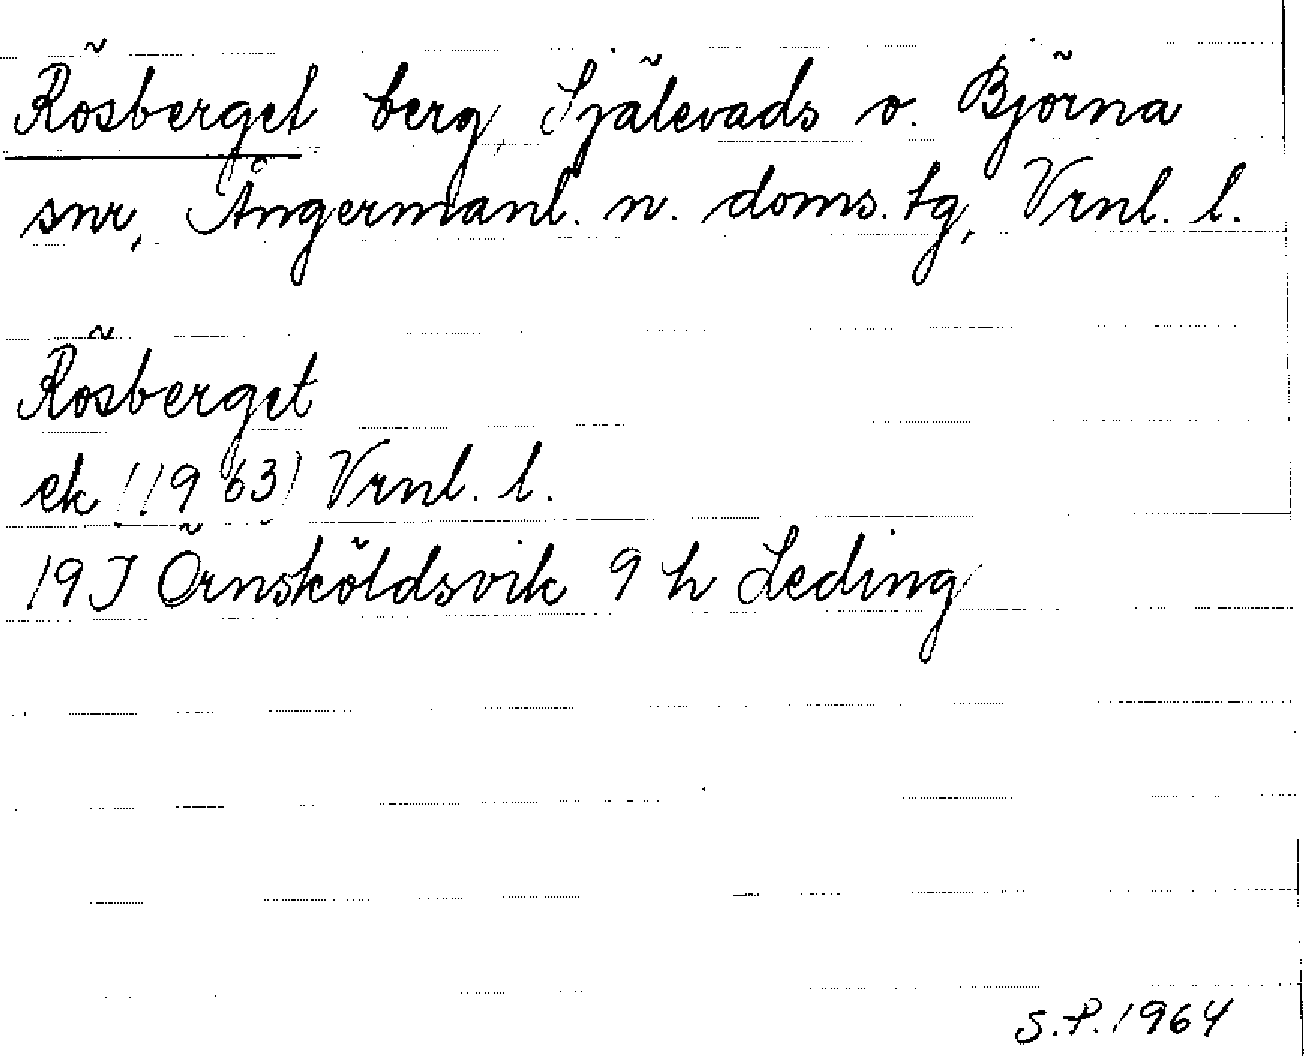 Rösberget berg, Själevads o. Björna
snr, Ångermanl. n. doms. tg, Vrnl. l.
Rösberget
ek (1963) Vrnl. l.
19J Örnsköldsvik 9 h Leding
S.P. 1964